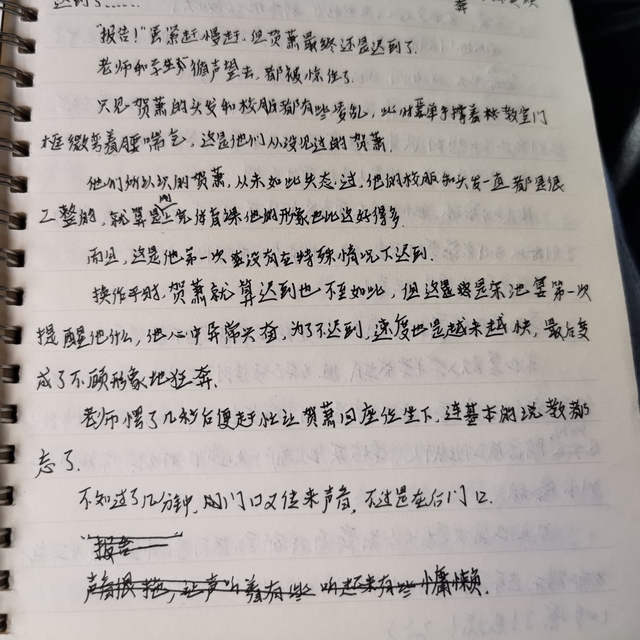 迟到了……
"报告!"紧赶慢赶,但贺萧最终还是迟到了.
老师和学生们循声望去,都被惊住了.
只见贺萧的头发和校服都有些凌乱,此时单手撑着教室门
框微弯着腰喘气,这是他们从没见过的贺萧.
他们所认识的贺萧,从未如此失态过,他的校服和头发一直都是很
工整的,就算是上完体育课他的形象也比这好得多.
而且,这是他第一次在没有在特殊情况下迟到.
换作平时,贺萧就算迟到也不至如此,但这是宋池第一次
提醒他什么,他心中异常兴奋,为了不迟到,速度也是越来越快,最后变
成了不顾形象地狂奔.
老师愣了几秒后便赶忙让贺萧回座位坐下,连基本的说教都
忘了.
不知过了几分钟,门口又传来声音,不过是在后门口.
"报告
声音很轻,让声听着有些 听起来有些慵懒.